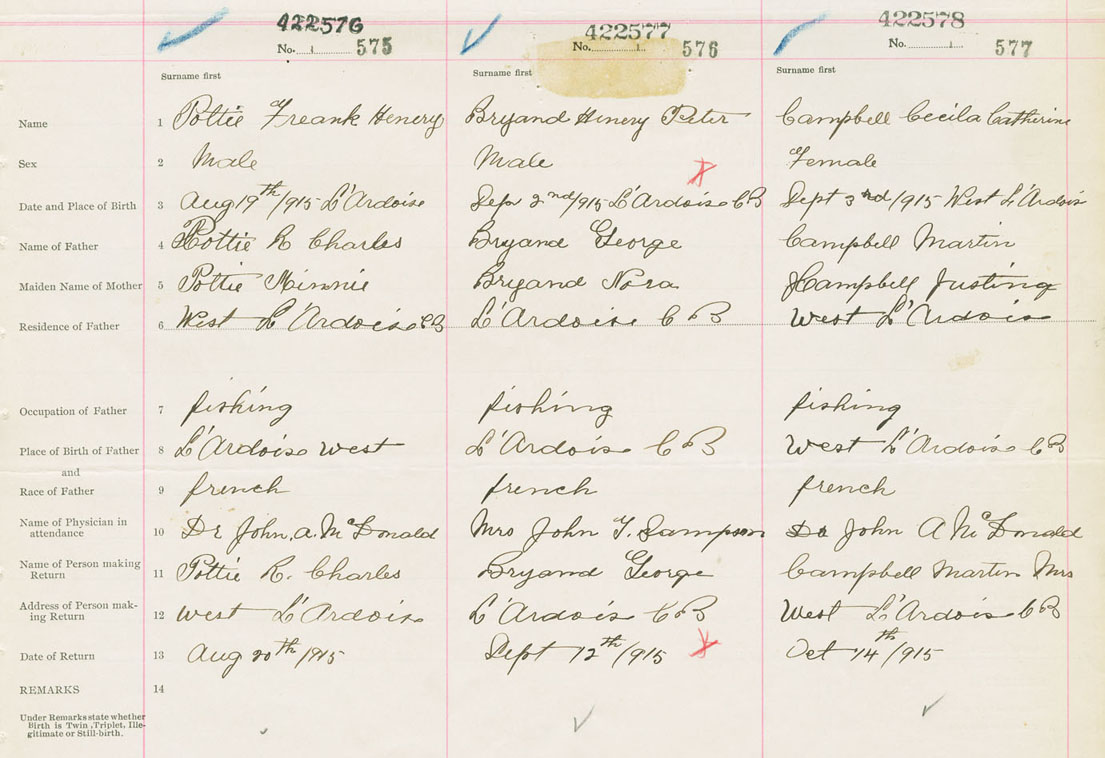 422576 422577 422578
No. 1 575 No. 1. 576 No. 1. 577
Surname first Surname first Surname first
Name 1 Pottie Freank Henery Bryand Hinery Peter Campbell Cecila Catherine
Sex 2 Male Male Female
Date and Place of Birth 3 Aug 19th/915 L'Ardoise Sepr 2nd/915 L'Ardoise C B Sept 3rd/915 West L'Ardois
Name of Father 4 Pottie R Charles Bryand George Campbell Martin
Maiden Name of Mother 5 Pottie Minnie Bryand Nora Campbell Justing
Residence of Father 6 West L'Ardoise CB L'Ardoise C B West L'Ardois
Occupation of Father 7 fishing fishing fishing
Place of Birth of Father 8 L'Ardoise west L'Ardoise C B West L'Ardoise C B
and
Race of Father 9 french french french
Name of Physician in
attendance 10 Dr John. A. McDonald Mrs John T. Sampson Dr John A McDonald
Name of Person making
Return 11 Pottie R. Charles Bryand George Campbell Martin Mrs
Address of Person mak-
ing Return 12 west L'Ardois L'Ardoise C B West L'Ardois C B
Date of Return 13 Aug 20th/915 Sept 12th/915 Oct 14th/915
REMARKS 14
Under Remarks state whether
Birth is Twin, Triplet, Ille-
gitimate or Still-birth.